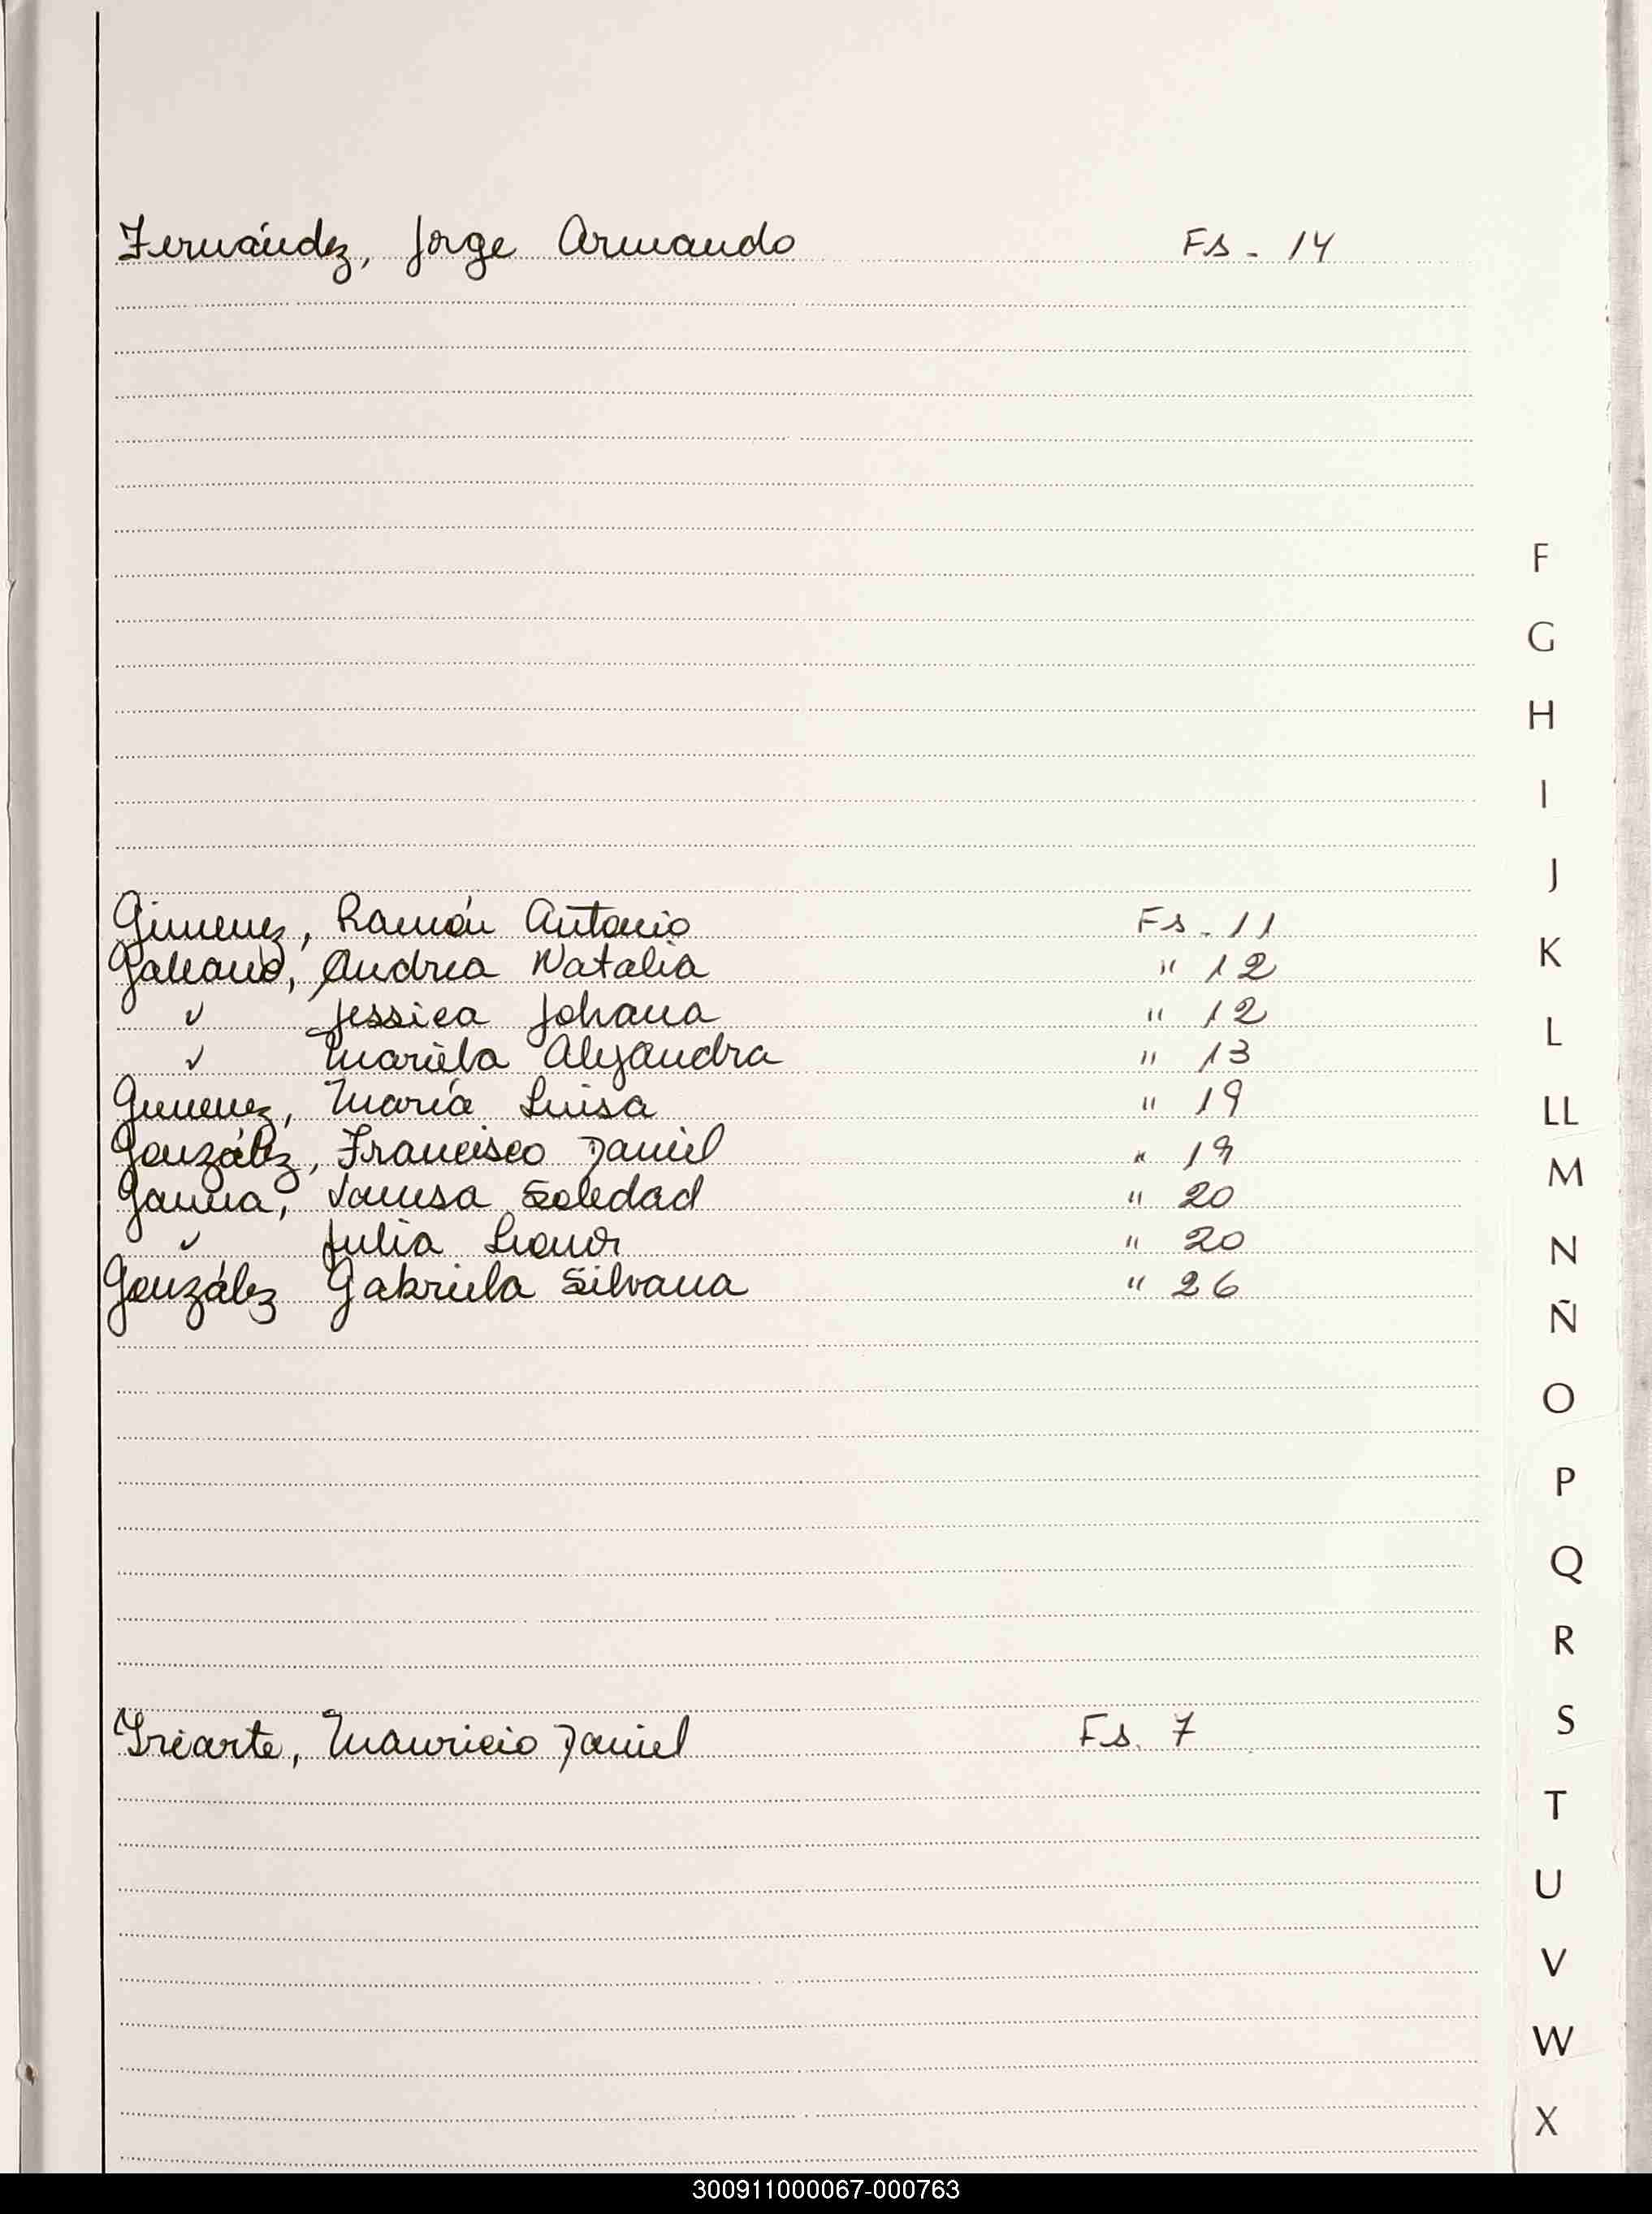 Fernández, Jorge Armando Fs. 14
Gimenez, Ramón Antonio Fs. 11
Galeano, Andrea Natalia " 12
" Jessica Johana " 12
" Mariela Alejandra " 13
Gimenez, María Luisa " 19
González, Francisco Daniel " 19
Gauna, Vanesa Soledad " 20
" Julia Leonor " 20
González Gabriela Silvana " 26
Iriarte, Mauricio Daniel Fs. 7
F
G
H
I
J
K
L
LL
M
N
Ñ
O
P
Q
R
S
T
U
V
W
X
300911000067-000763